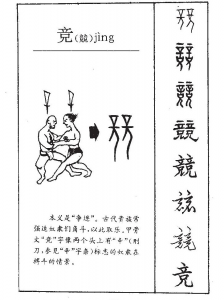 竞(競)jìng
本义是“争逐”。古代贵族常
强迫奴隶们角斗,以此取乐。甲骨
文“竞”字像两个头上有“辛”(刑
刀,参见“辛”字条)标志的奴隶在
搏斗的情景。
競
競
竞